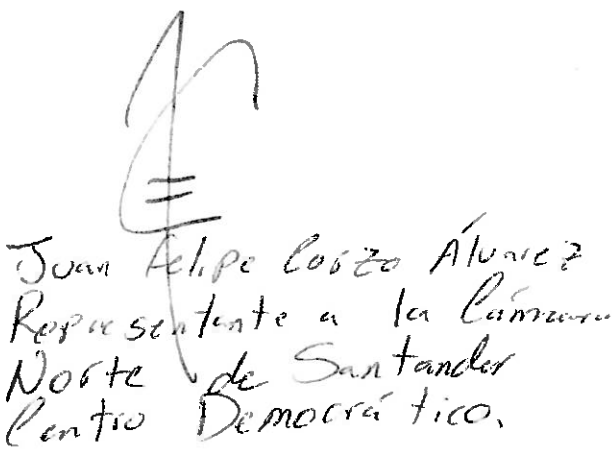 Juan Felipe Corzo Álvarez
Representante a la Cámara
Norte de Santander
Centro Democrático.